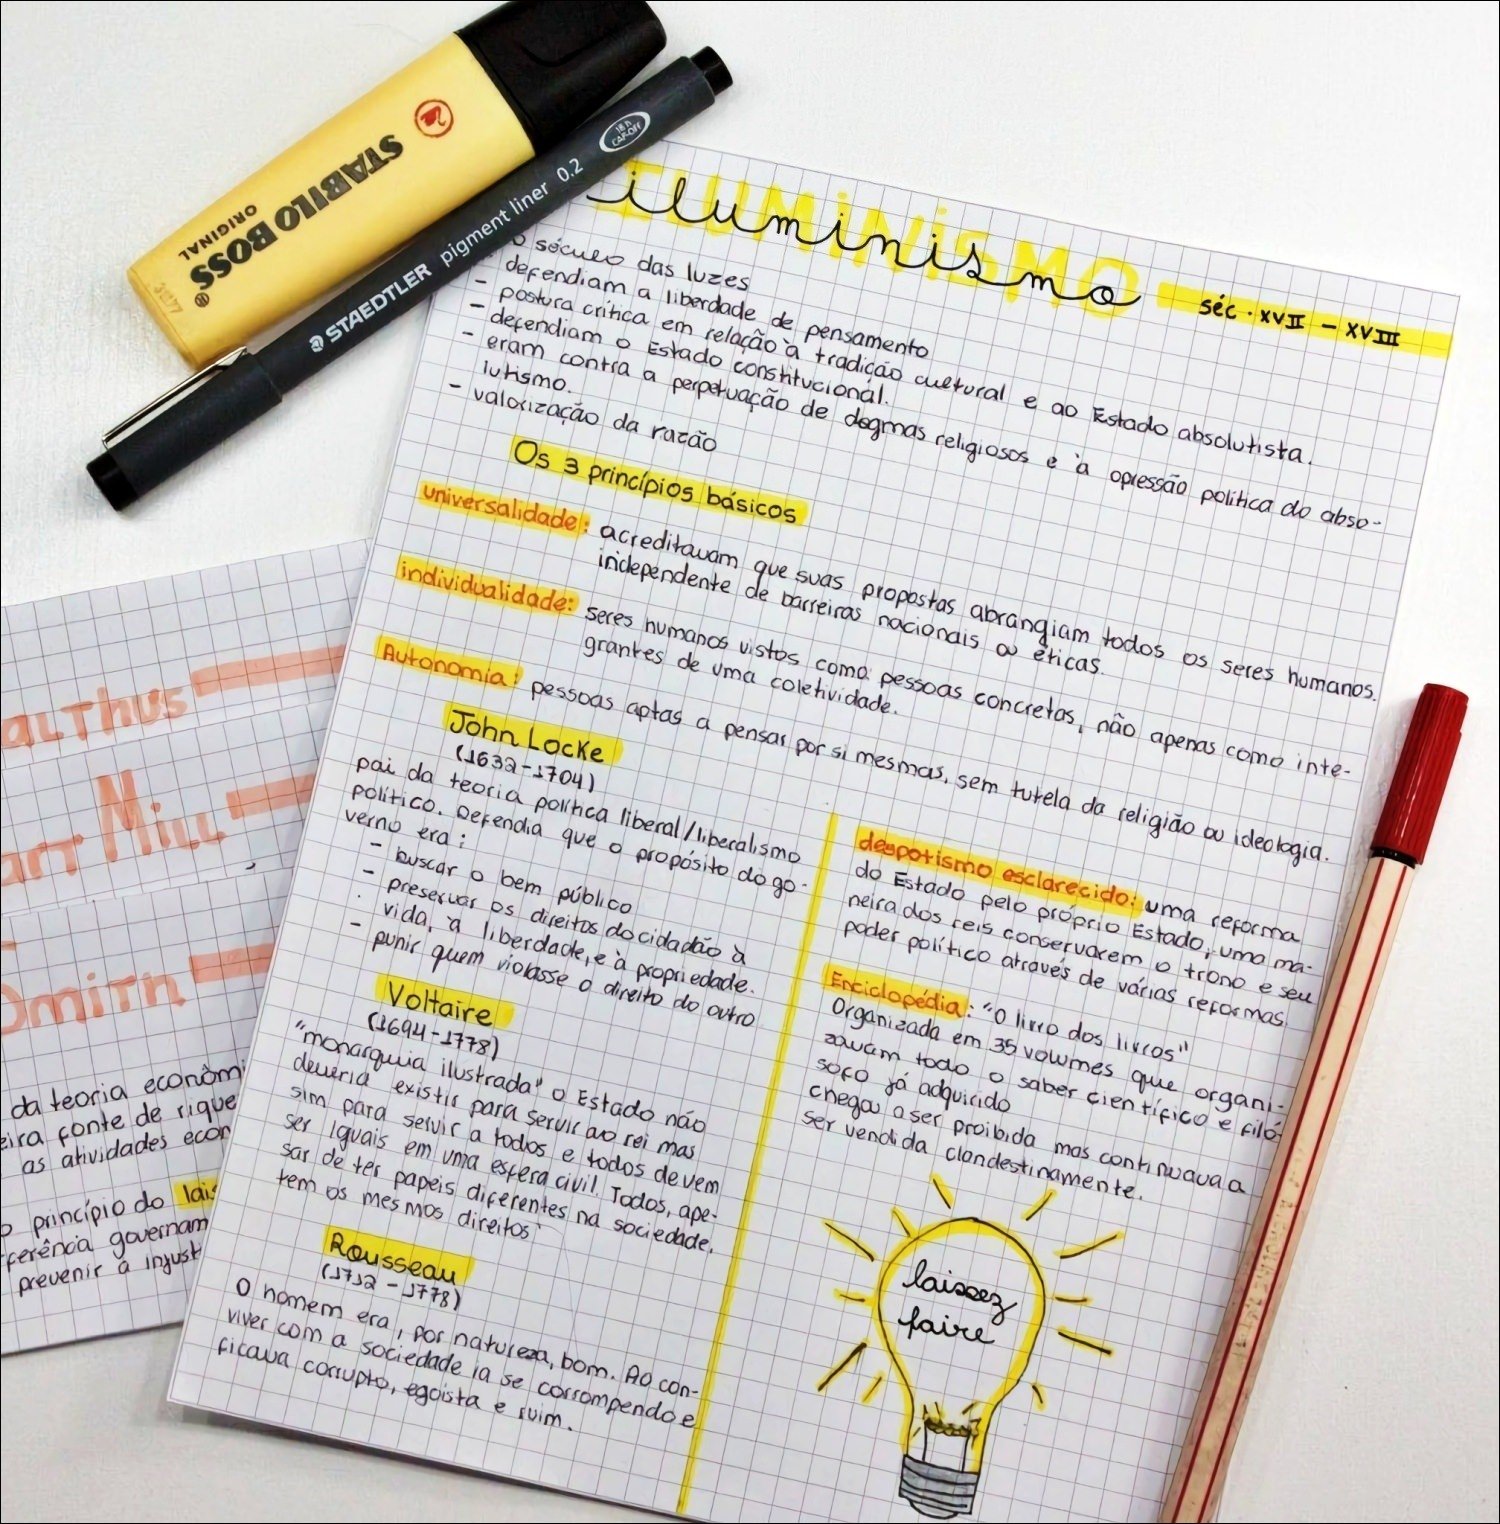 STABILO BOSS
ORIGINAL
STAEDTLER pigment liner 0.2
18 h
CAP-OFF
iluminismo
ILUMINISMO
séc. XVII - XVIII
O século das luzes
- defendiam a liberdade de pensamento
- postura crítica em relação à tradição cultural e ao Estado absolutista.
- defendiam o Estado constitucional.
- eram contra a perpetuação de dogmas religiosos e à opressão política do abso-
lutismo.
- valorização da razão
Os 3 princípios básicos
universalidade: acreditavam que suas propostas abrangiam todos os seres humanos.
independente de barreiras nacionais ou éticas.
individualidade: seres humanos vistos como pessoas concretas, não apenas como inte-
grantes de uma coletividade.
Autonomia: pessoas aptas a pensar por si mesmas, sem tutela da religião ou ideologia.
John Locke
(1632-1704)
pai da teoria política liberal/liberalismo
político. Defendia que o propósito do go-
verno era:
- buscar o bem público
- preservar os direitos do cidadão à
vida, à liberdade, e à propriedade.
- punir quem violasse o direito do outro
Voltaire
(1694-1778)
"monarquia ilustrada" o Estado não
deveria existir para servir ao rei mas
sim para servir a todos e todos devem
ser iguais em uma esfera civil. Todos, ape-
sar de ter papeis diferentes na sociedade,
tem os mesmos direitos
Rousseau
(1712 - 1778)
O homem era, por natureza, bom. Ao con-
viver com a sociedade ia se corrompendo e
ficava corrupto, egoista e ruim.
despotismo esclarecido: uma reforma
do Estado pelo próprio Estado, uma ma-
neira dos reis conservarem o trono e seu
poder político através de várias reformas.
Enciclopédia: "O livro dos livros"
Organizada em 35 volumes que organi-
zavam todo o saber científico e filó-
sofo já adquirido
chegou a ser proibida mas continuava a
ser vendida clandestinamente.
laissez
faire
althus
art Mill
Smith
da teoria econômi
eira fonte de rique
as atividades econ
o princípio do lais
ferência governam
prevenir a injust